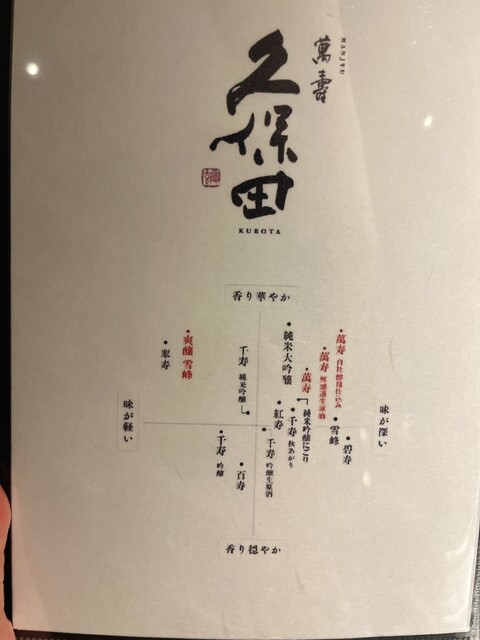 MANJYU
萬寿
久保田
KUBOTA
香り華やか
萬寿 自社酵母仕込み
萬寿 無濾過生原酒
萬寿
純米大吟醸
爽醸 雪峰
翠寿
千寿 純米吟醸
純米吟醸にごり
紅寿
千寿 秋あがり
雪峰
碧寿
千寿 吟醸生原酒
千寿 吟醸
百寿
味が軽い
味が深い
香り穏やか